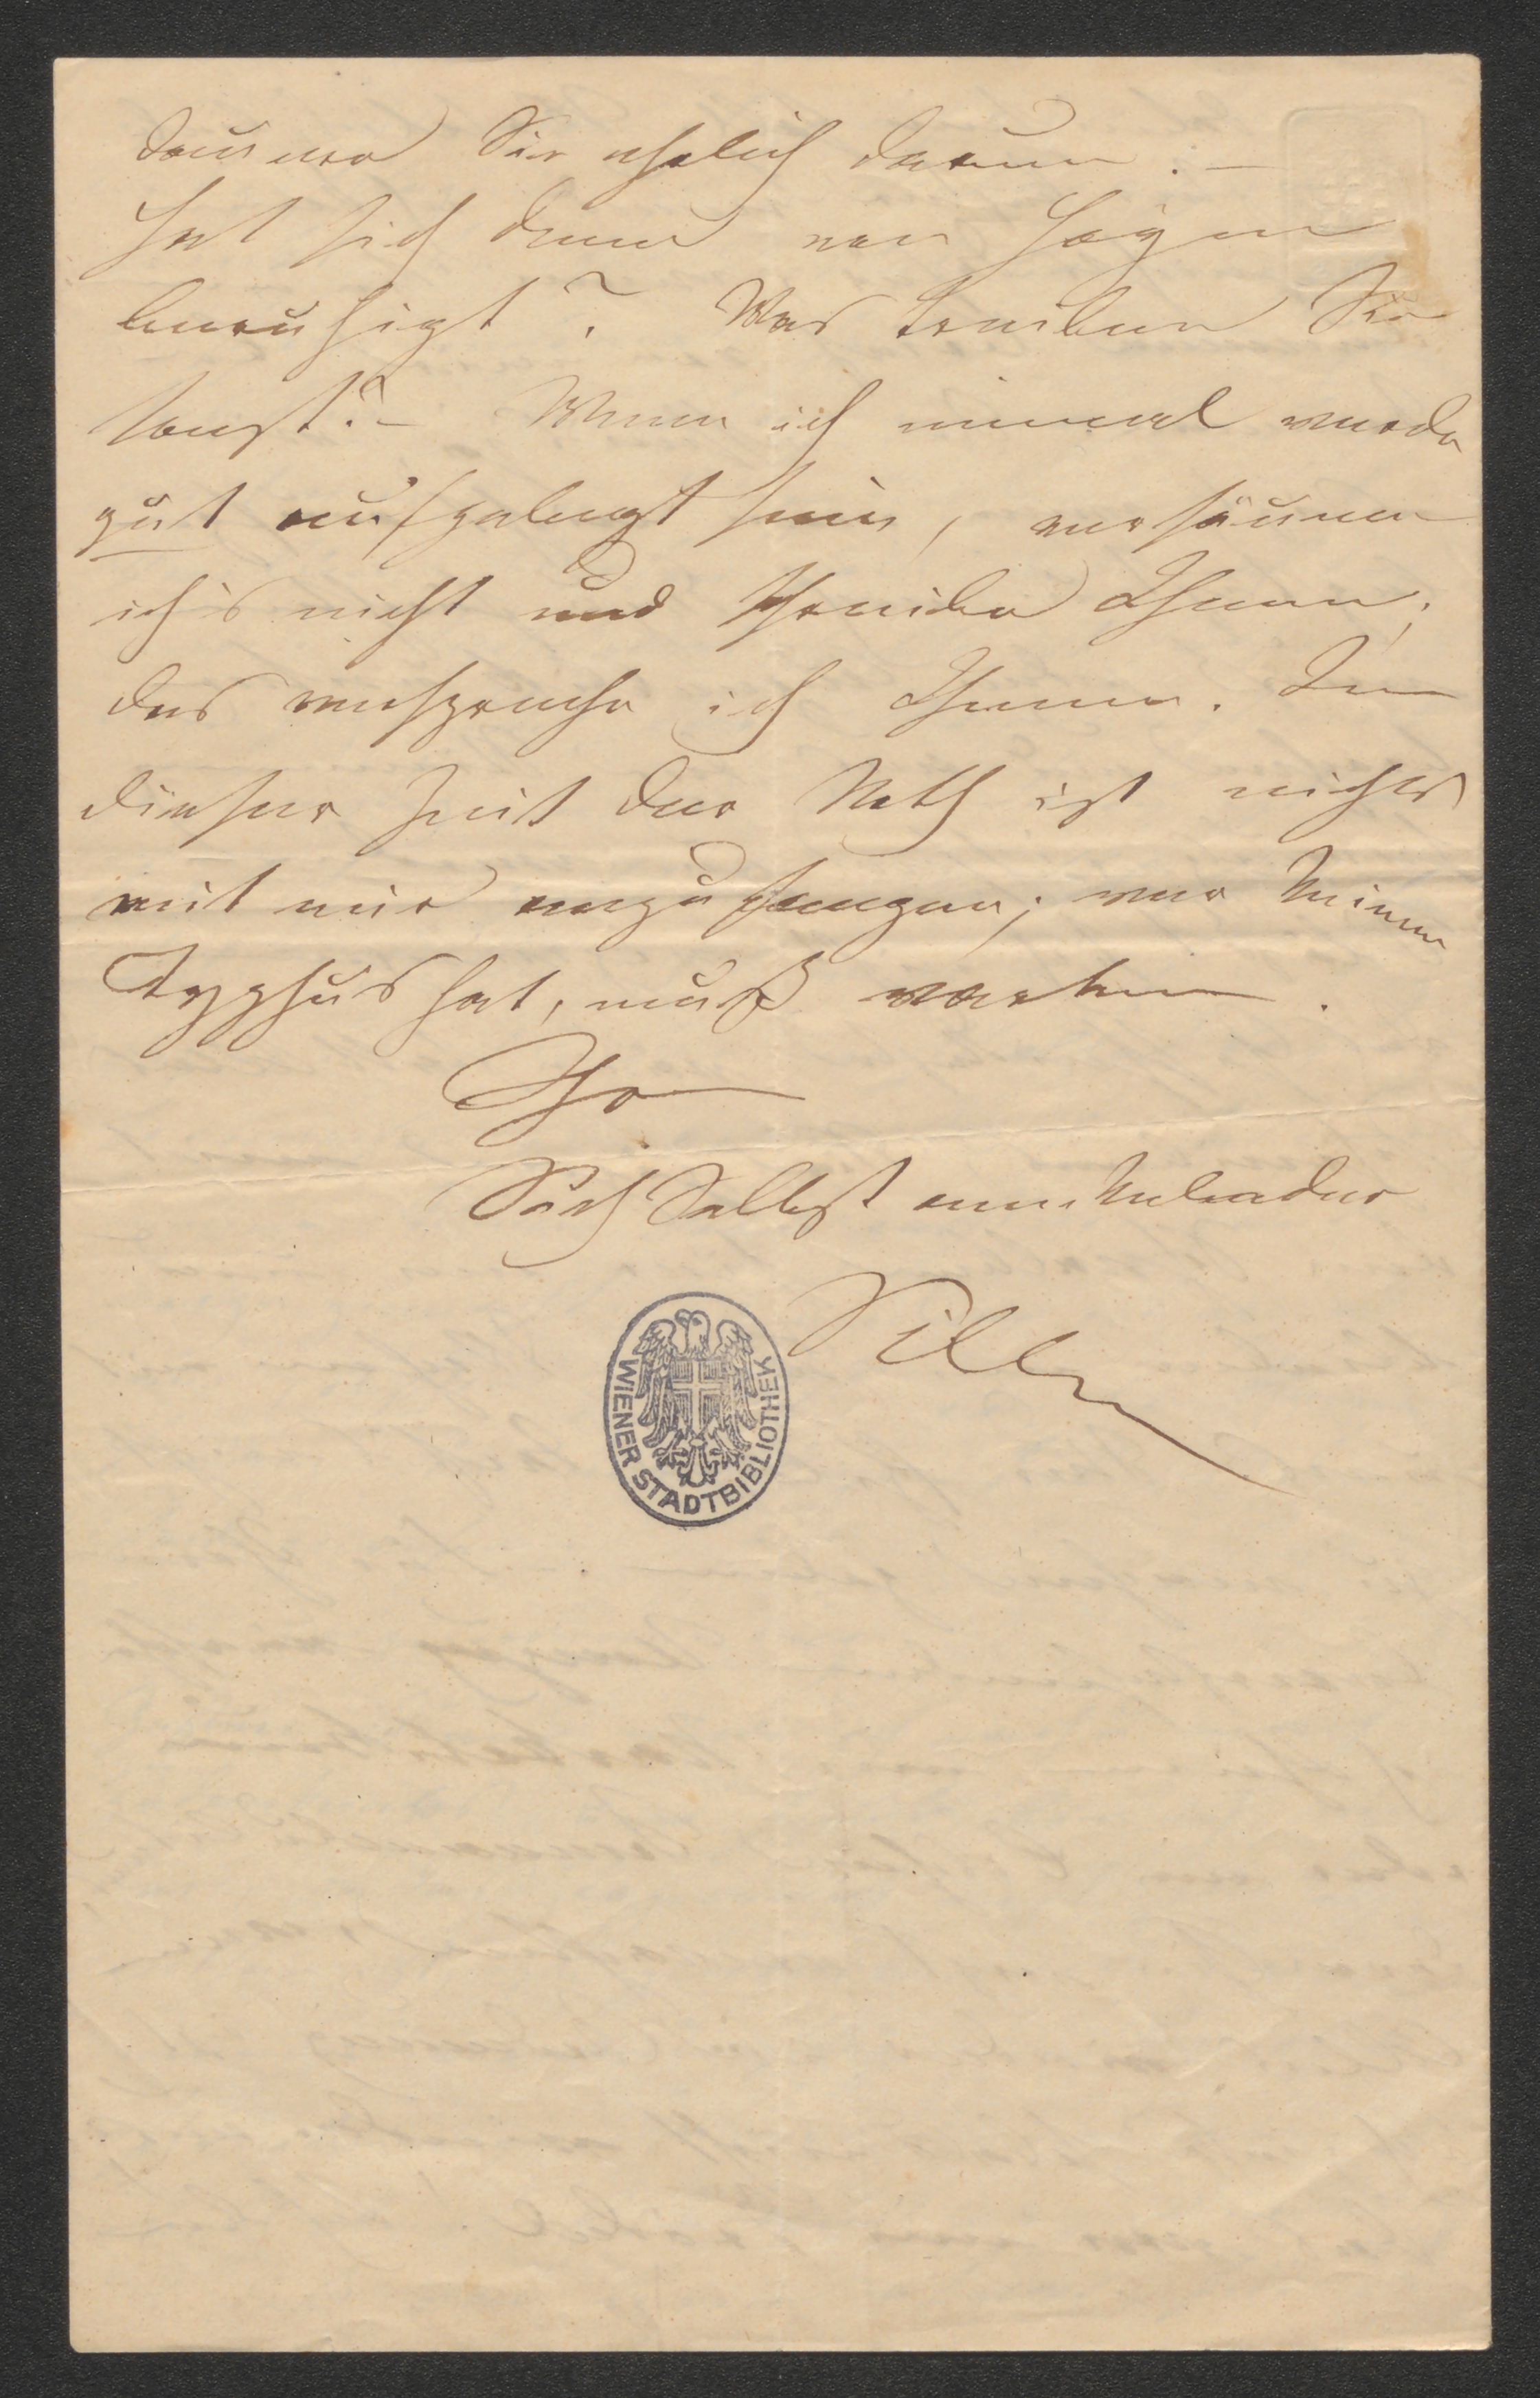 daure Sie ehrlich darum. –
Hat sich denn von Hagen
beruhigt? Was treiben Sie
sonst? – Wenn ich einmal werde
gut aufgelegt sein, versäume
ich's nicht und schreibe Ihnen;
das verspreche ich Ihnen. In
dieser Zeit der Noth ist nichts
mit mir anzufangen; wer keinen
Typhus hat, muß warten.
Ihr
Sich Selbst
WIENER STADTBIBLIOTHEK